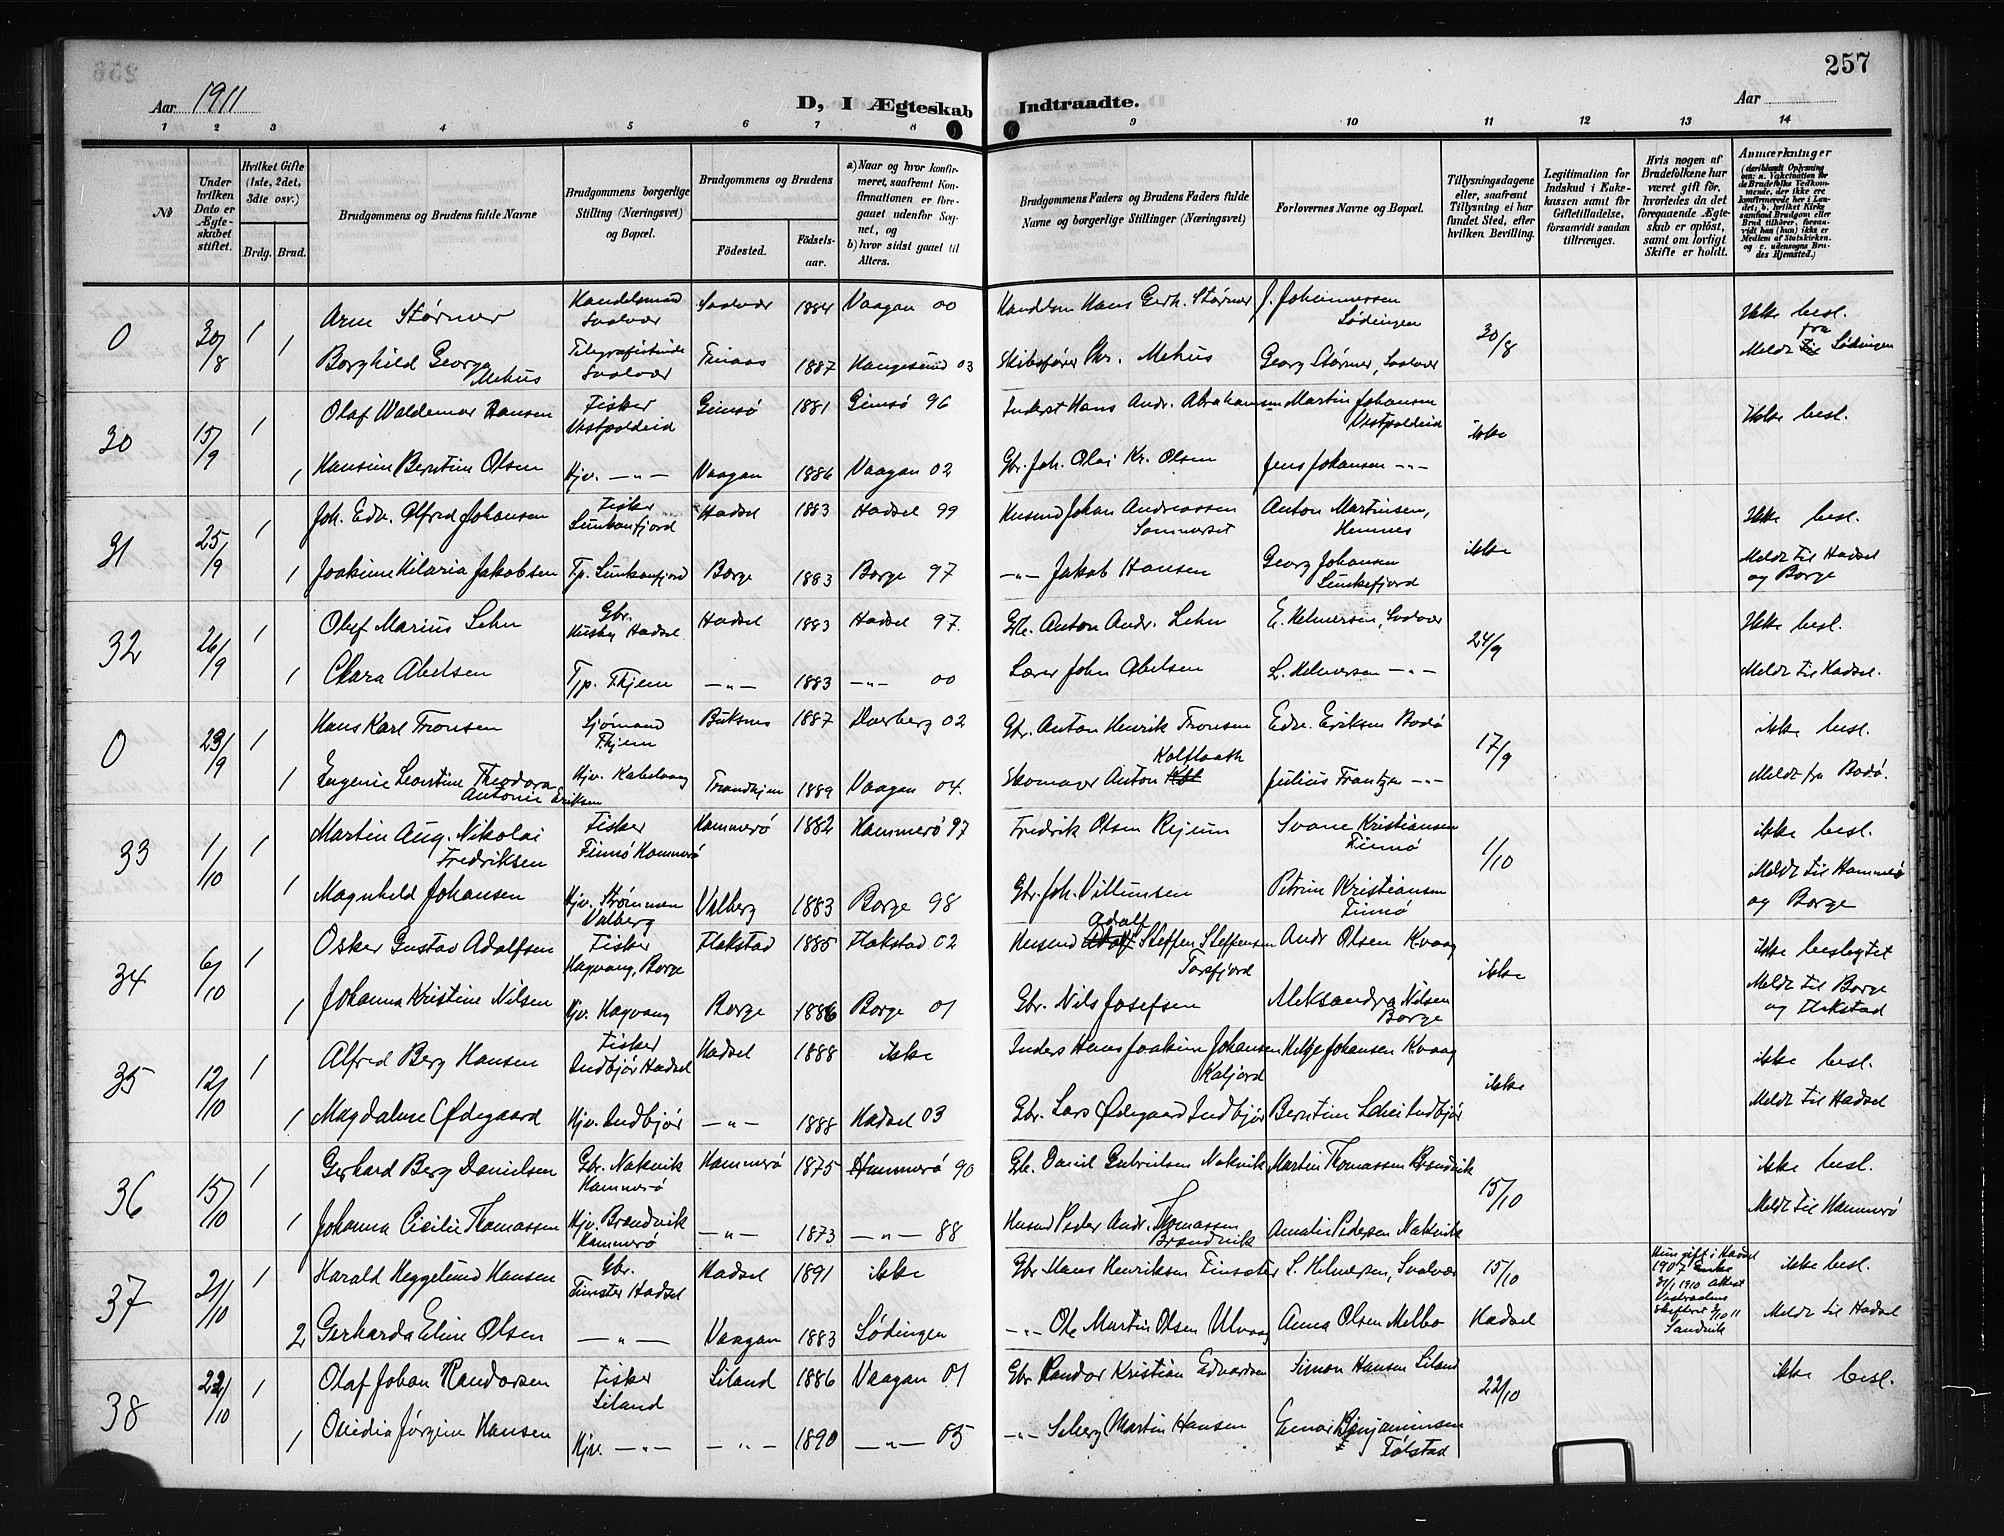 257
Aar 1911
D, I Ægteskab Indtraadte.
Aar
1 2 3 4 5 6 7 8 9 10 11 12 13 14
No
Under hvilken Dato er Ægteskabet stiftet.
Hvilket Gifte (1ste, 2det, 3die osv.)
Brdg. Brud.
Brudgommens og Brudens fulde Navne
Brudgommens borgerlige Stilling (Næringsvei) og Bopæl.
Brudgommens og Brudens
Fødested.
Fødselsaar.
a) Naar og hvor konfirmeret, saafremt Konfirmationen er foregaaet udenfor Sognet, og
b) hvor sidst gaaet til Alters.
Brudgommens Faders og Brudens Faders fulde Navne og borgerlige Stillinger (Næringsvei)
Forlovernes Navne og Bopæl.
Tillysningsdagene eller, saafremt Tillysning ei har fundet Sted, efter hvilken Bevilling.
Legitimation for Indskud i Enkekassen samt for Giftetilladelse, forsaavidt saadan tiltrænges.
Hvis nogen af Brudefolkene har været gift før, hvorledes da det foregaaende Ægteskab er opløst, samt om lovligt Skifte er holdt.
Anmærkninger
0 30/8 1 Arne Størmer Handelsmand Svolvær Svolvær 1884 Vaagan 00 Handlsm Hans Gerh. Størmer J. Johannessen Lødingen 30/8 Ikke besl.
1 Borghild Georga Mehus Telegrafistinde Svolvær 1887 Haugesund 03 Skibsfører Chr. Mehus Georg Størmer, Svolvær Meldt fra Lødingen
30 15/9 1 Olaf Waldemar Hansen Fisker Vestpoldeid Gimsø 1881 Gimsø 96 Inderst Hans Andr. Abrahamsen Martin Johansen Vestpoldeid ikke Ikke besl.
1 Hansine Berntine Olsen Hjv. -"- Vaagan 1886 Vaagan 02 Gbr. Joh. Olai Kr. Olsen Jens Johansen -"-
31 25/9 1 Joh. Edv. Alfred Johansen Fisker Hadsel 1883 Hadsel 99 Husmd Johan Andreassen Sommerset Anton Martinsen, Hennes ikke Ikke besl.
1 Joakime Hilaria Jakobsen Tp. Borge 1883 Borge 97 -"- Jakob Hansen Georg Johansen Meldt til Hadsel og Borge
32 26/9 1 Oluf Marius Lehn Gbr. Husby Hadsel Hadsel 1883 Hadsel 97. Anton Andr. Lehn E. Helmersen, Svolvær 24/9 Ikke besl.
1 Clara Abelsen Tjp. Thjem -"- 1883 -"- 00 Lærer John Abelsen L. Helmersen -"- Meldt til Hadsel.
0 23/9 1 Hans Karl Tronsen Sjømand Thjem Buksnes 1887 02 Gbr. Anton Henrik Tronsen Edv. Eriksen Bodø 17/9 ikke besl.
1 Eugenie Leontine Theodora Antonie Eriksen Hjv. Kabelvaag Trondhjem 1889 Vaagan 04. Skomager Anton Julius Frantzen -"- Meldt fra Bodø.
33 1/10 1 Martin Aug. Nikolai Fredriksen Fisker Finnø Hammerø Hammerø 1882 Hammerø 97 Fredrik Olsen Svane Kristiansen Finnø 1/10 ikke besl.
1 Magnhild Johansen Hjv. Strømmen Valberg Valberg 1883 Borge 98 Gbr. Joh. Villumsen Petrine Kristiansen Finnø Meldt til Hammerø og Borge
34 6/10 1 Osker Gustav Adolfsen Fisker Hagvaag, Borge Flakstad 1885 Flakstad 02 Husmd Adolf Steffen Steffensen Torsfjord Andr Olsen Kvaag ikke ikke beslegtet
1 Johanna Kristine Nilsen Hjv. Hagvaag Borge 1886 Borge 01 Gbr. Nils Josefsen Aleksandra Nilsen Borge Meldt til Borge og Flakstad
35 12/10 1 Alfred Berg Hansen Fisker Indbjør Hadsel Hadsel 1888 ikke Inders Hans Joakim Johansen Kaljord Helge Johansen Kvaag ikke ikke besl.
1 Magdalene Ødegaard Hjv. Indbjør -"- 1888 Hadsel 03 Gbr. Lars Ødegaard Indbjør Berntine Indbjør Meldt til Hadsel
36 15/10 1 Gerhard Berg Danielsen Gbr. Nakvik Hammerø Hammerø 1875 Hammerø 90 Gbr. Daniel Gabrielsen Nakvik Martin Thomassen Brandvik 15/10 ikke besl.
1 Johanna Cicilie Thomassen Hjv. Brandvik Hammerø -"- 1873 -"- 88 Husmd Peder Andr. Thomassen Brandvik Amalie Pedersen Nakvik Meldt til Hammerø
37 21/10 1 Harald Heggelund Hansen Gbr. Hadsel Hadsel 1891 ikke Gbr Hans Henriksen L. Helmersen, Svolvær 15/10 Hadsel Hun gift i Hadsel 1907 Enke 1910 Attest Sandvik ikke besl.
2 Gerharda Eline Olsen -"- Vaagan 1883 Lødingen -"- Ole Martin Olsen Ulvaag Anna Olsen Melbo Meldt til Hadsel
38 22/10 1 Olaf Johan Randorsen Fisker Liland Liland 1886 Vaagan 01 Gbr Randor Kristian Edvardsen Simon Hansen Liland 22/10 ikke besl.
1 Ovidia Jørgine Hansen Hjv. -"- -"- 1890 -"- 05 -"- Martin Hansen Einar Benjaminsen Tølstad